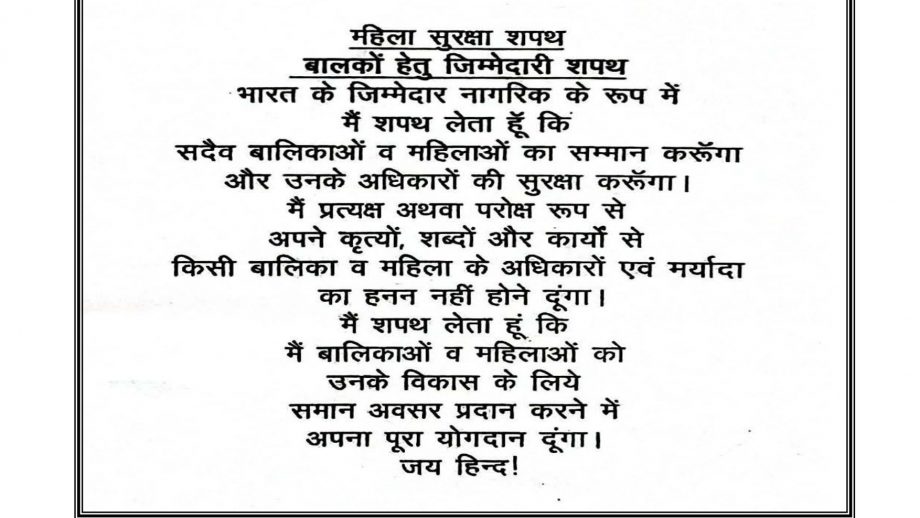 महिला सुरक्षा शपथ
बालकों हेतु जिम्मेदारी शपथ
भारत के जिम्मेदार नागरिक के रूप में
मैं शपथ लेता हूँ कि
सदैव बालिकाओं व महिलाओं का सम्मान करूँगा
और उनके अधिकारों की सुरक्षा करूँगा।
मैं प्रत्यक्ष अथवा परोक्ष रूप से
अपने कृत्यों, शब्दों और कार्यों से
किसी बालिका व महिला के अधिकारों एवं मर्यादा
का हनन नहीं होने दूंगा।
मैं शपथ लेता हूं कि
मैं बालिकाओं व महिलाओं को
उनके विकास के लिये
समान अवसर प्रदान करने में
अपना पूरा योगदान दूंगा।
जय हिन्द!